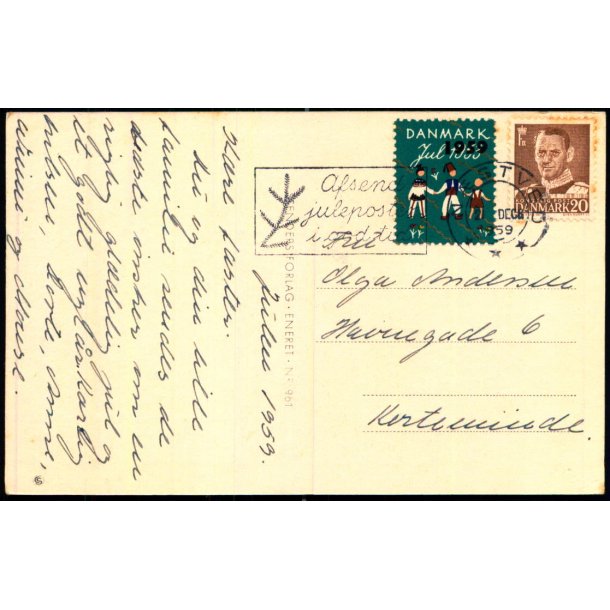 Julen 1959.
Kære Faster.
Du og din lille
familie ønskes de
bedste ønsker om en
rigtig glædelig Jul og
et godt nytår. Kærlig
hilsen, Grethe, Anne,
og
DANMARK
Jul 1958
1959
DANMARK 20
Afsend
julepost
i god ti
DECR
1959
Fru
Olga Andersen
Havnegade 6
Kerteminde.
FORLAG · ENERET · Nr 961